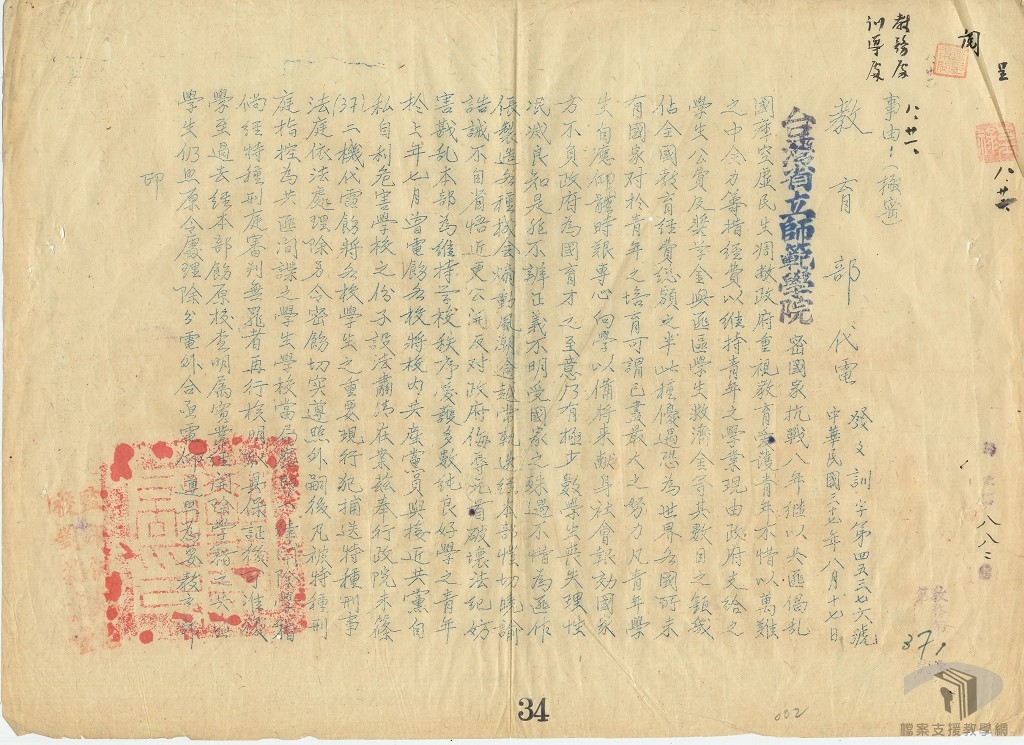 閱
呈
教務處
訓導處
八、廿一、
八、廿
事由：（極密）
教育部代電
發文訓字第四五三七六號
中華民國三十七年八月十七日
台灣省立師範學院
密國家抗戰八年繼以共匪倡亂
國庫空虛民生凋敝政府重視教育愛護青年不惜以萬難
之中令力籌措經費以維持青年之學業現由政府支給之
學生公費及奬学金與匪區學生救濟金等其數目之鉅幾
佔全國教育經費總額之半此種優遇恐為世界各國所未
有國家对於青年之培育可謂已盡最大之努力凡青年學
生自應仰體時艱專心向學以備將来献身社會報効國家
方不負政府為國育才之至意乃有極少數學生喪失理性
泯滅良知是非不辨正義不明受國家之殊遇不惜為匪作
倀製造各種機会煽動風潮倫越常軌迭經本部愷切曉諭
誥誡不自省悟近更公開反对政府侮辱元首破壞法紀妨
害戡乱本部為維持学校秩序愛護多數純良好學之青年
於上年七月曾電飭各校將校內共產黨員與接近共黨自
私自利危害學校之份子設法肅清在案茲奉行政院未篠
(37)二機代電飭將各校學生之重要現行犯捕送特種刑事
法庭依法處理除另令密飭切实遵照外嗣後凡被特種刑
庭指控為共匪间諜之學生學校當局
開除學籍
倘經特種刑庭審判無罪者再行核明
具保証後可准復
學至過去經本部飭原校查明属實業经開除學籍之共
學生仍照原令處理除分電外合亟電仰遵照為要教育部
印
八八二
37,
34
002
檔案支援教學網